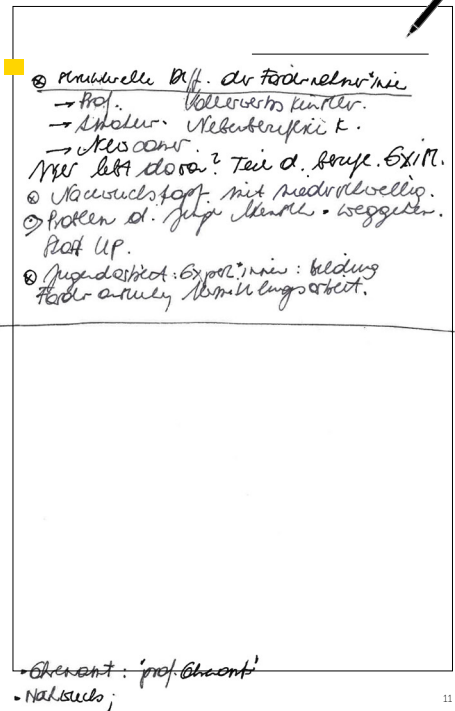 ⊗ strukturelle Diff. der Fördernehmer*inne
→ Prof. Vollerwerbs künstler.
→ Amateur. Nebenberufliche K.
→ Newcomer.
Wer lebt davon? Teil d. berufl. Exist.
⊗ Nachwuchstopf mit niedrschwellig.
⊙ Problem d. junge Mensch. weggehen.
Start UP.
⊗ Jugendarbeit: Expert*innen: bildung
Förder Vermittlungsarbeit.
• Ehrenamt: 'prof. Ehrenamt'
• Nachwuchs;
11